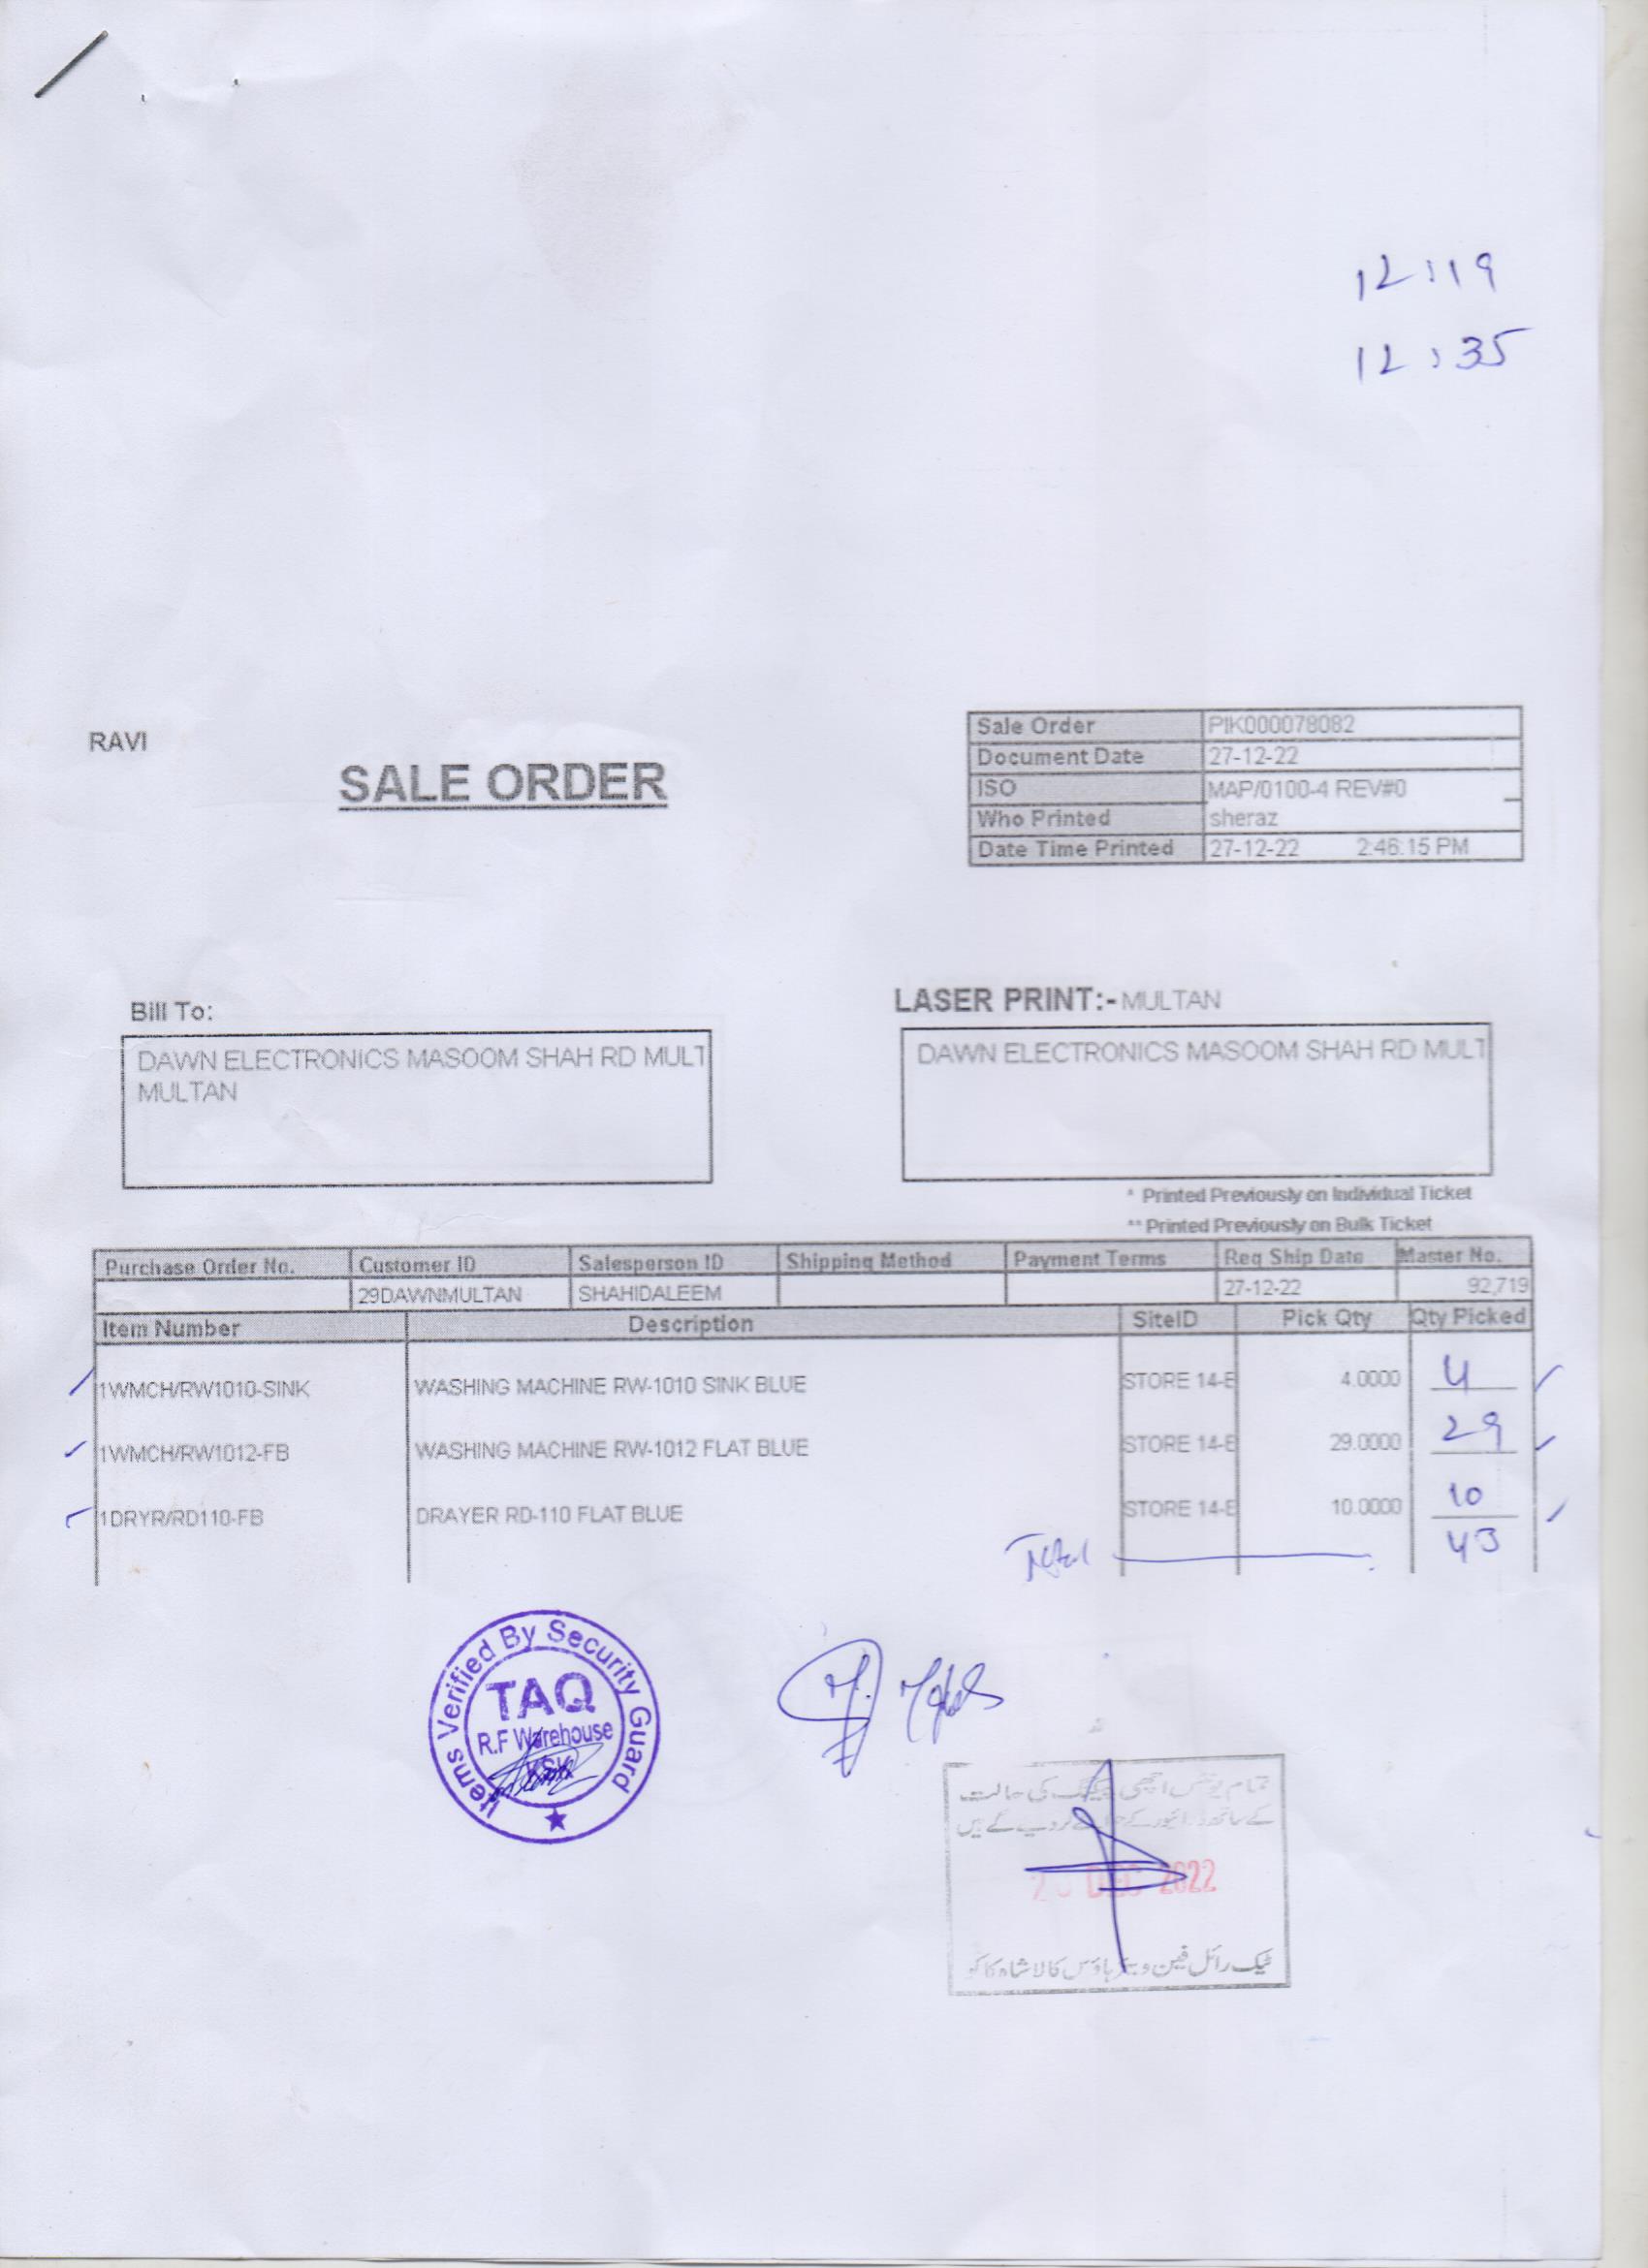 12:19
12:35
RAVI
SALE ORDER
Sale Order PIK000078082
Document Date 27-12-22
ISO MAP/0100-4 REV#0
Who Printed sheraz
Date Time Printed 27-12-22 2:46:15 PM
Bill To:
LASER PRINT:- MULTAN
DAWN ELECTRONICS MASOOM SHAH RD MULT
MULTAN
DAWN ELECTRONICS MASOOM SHAH RD MULT
* Printed Previously on Individual Ticket
** Printed Previously on Bulk Ticket
Purchase Order No. Customer ID Salesperson ID Shipping Method Payment Terms Req Ship Date Master No.
29DAWNMULTAN SHAHIDALEEM 27-12-22 92,719
Item Number Description SiteID Pick Qty Qty Picked
1WMCH/RW1010-SINK WASHING MACHINE RW-1010 SINK BLUE STORE 14-E 4.0000 4
1WMCH/RW1012-FB WASHING MACHINE RW-1012 FLAT BLUE STORE 14-E 29.0000 29
1DRYR/RD110-FB DRAYER RD-110 FLAT BLUE STORE 14-E 10.0000 10
Total 43
Items Verified By Security Guard
TAQ
R.F Warehouse
KSK
تمام یونٹس اچھی پیکنگ کی حالت
کے ساتھ ڈرائیور کے حوالے کر دیے گئے ہیں
DEC 2022
ٹیک رائل فین ویئر ہاؤس کالا شاہ کاکو